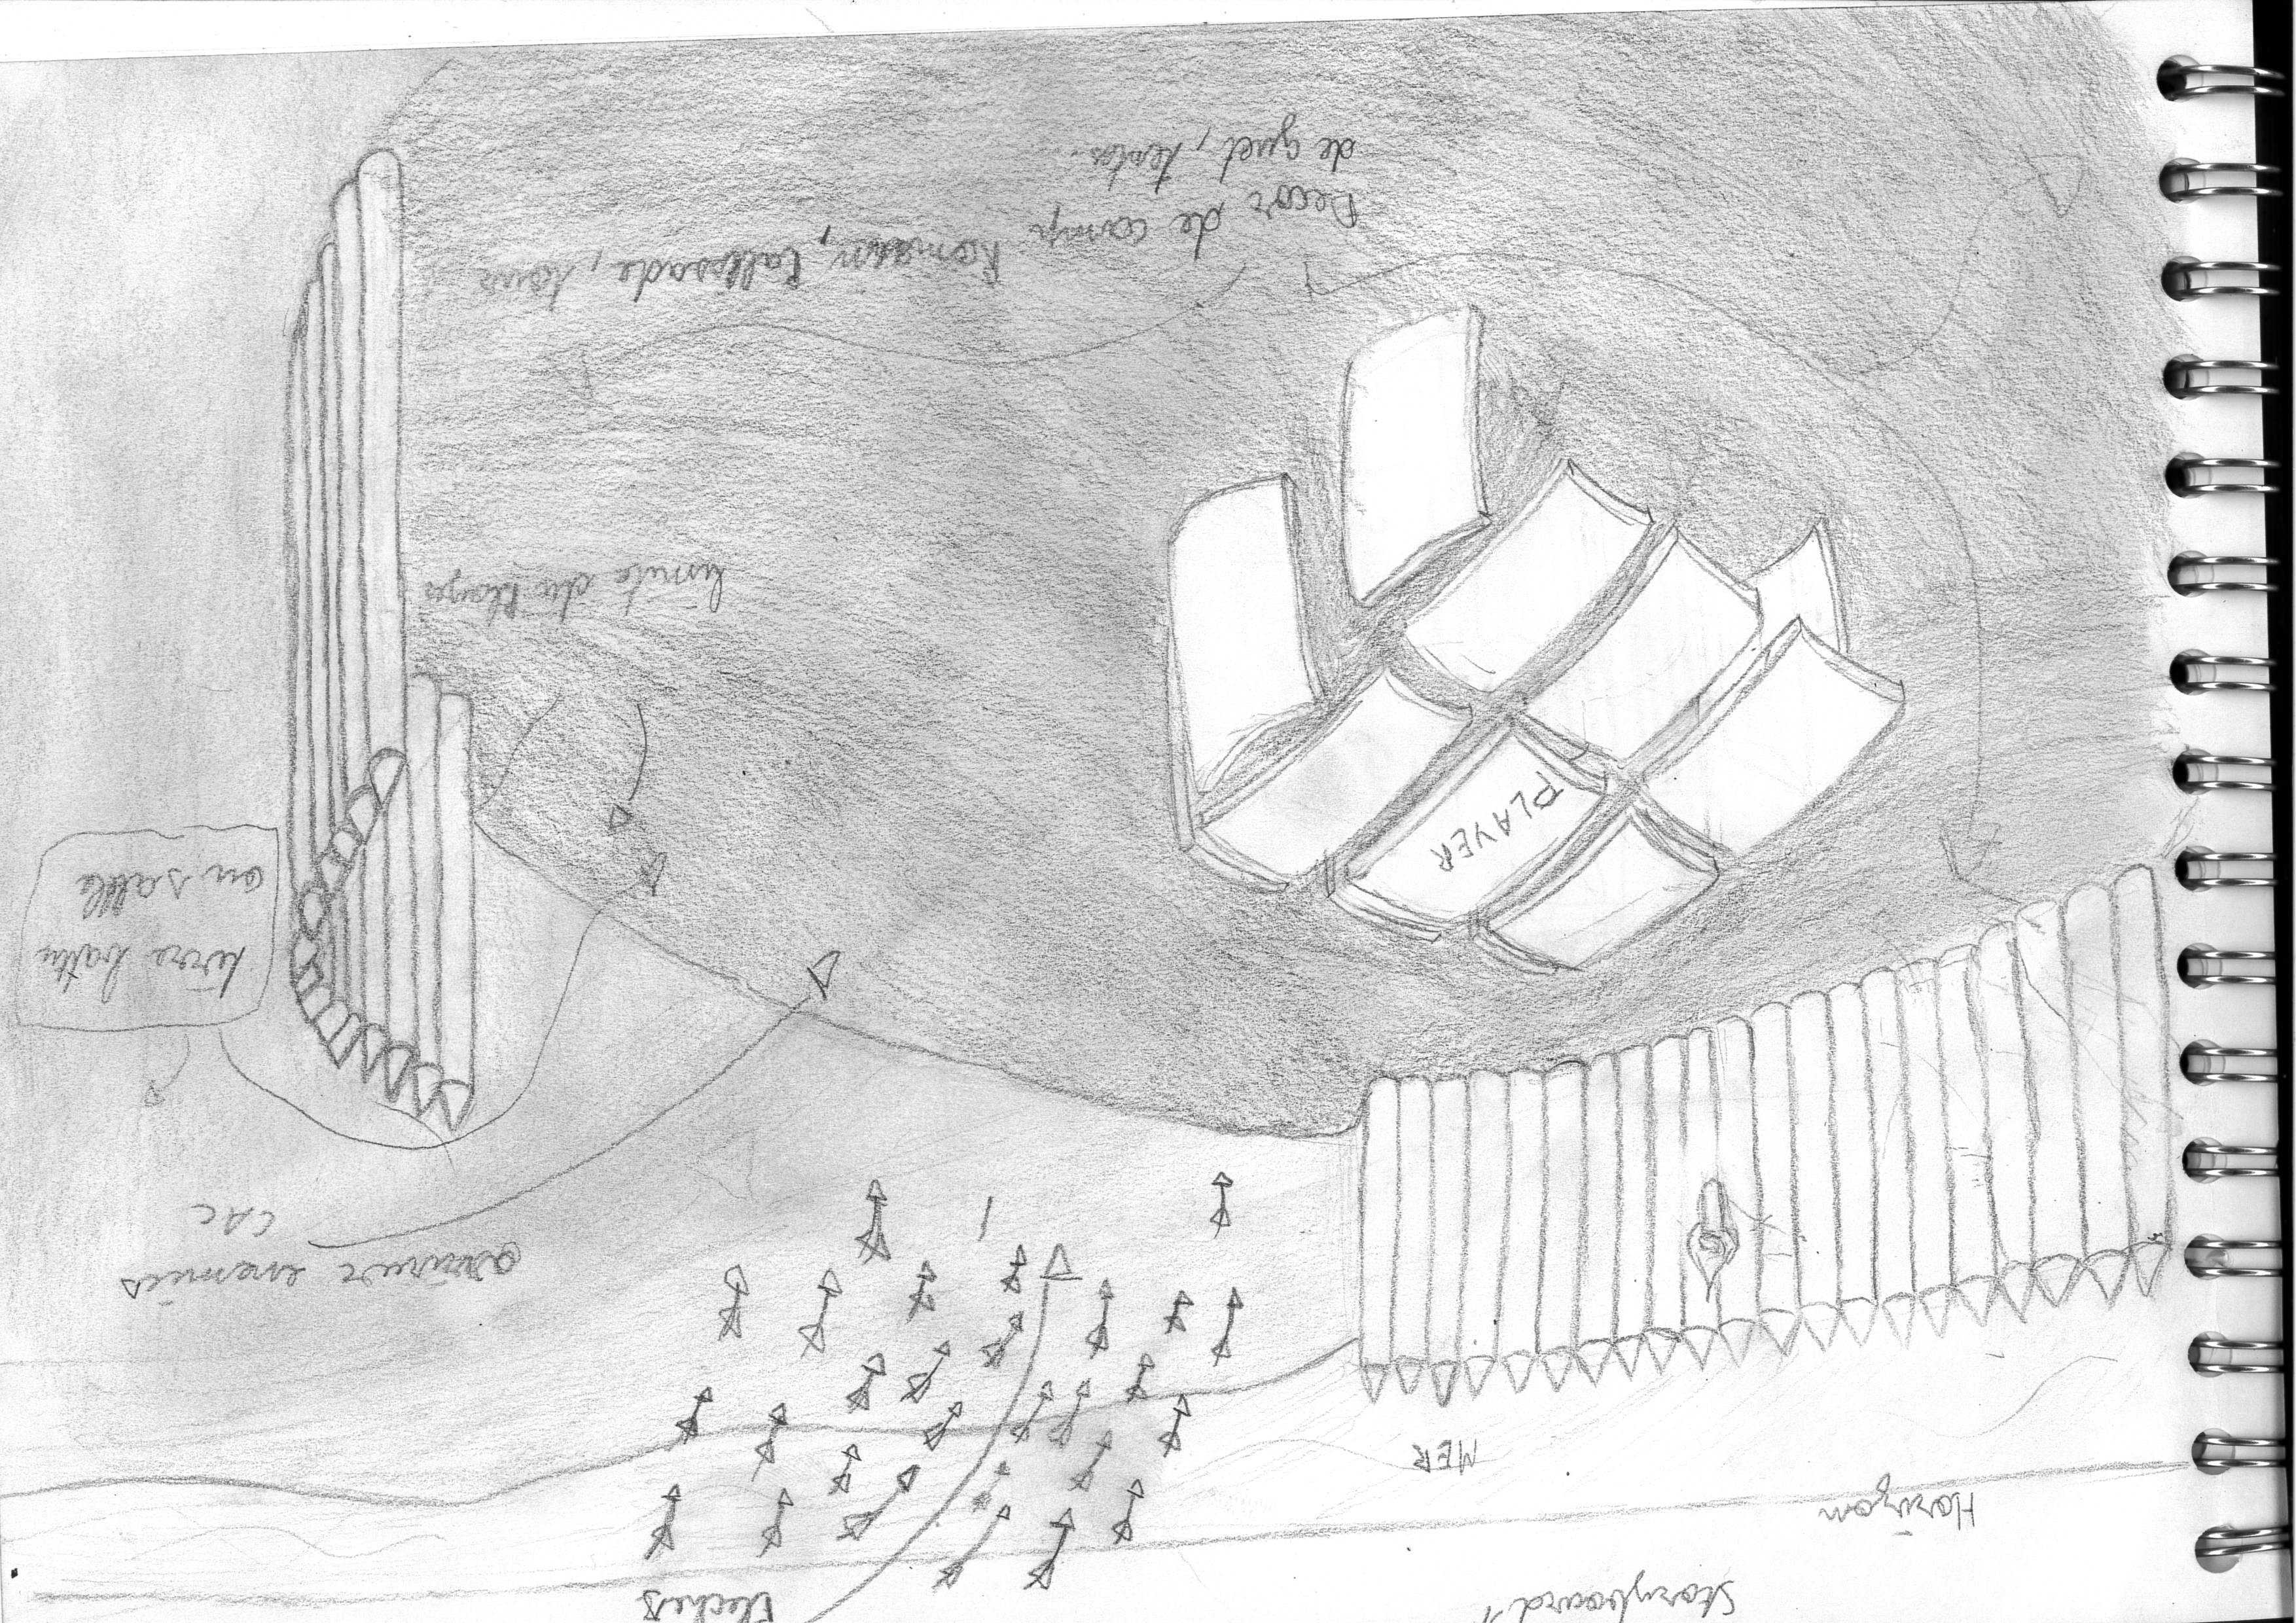 Storyboard 1
Fleches
Horizon
MER
arriver enemies
CAC
terre battu
ou sable
PLAYER
limite du
Decor de camp Romain, Pallissade, tour
de guet, tentes.